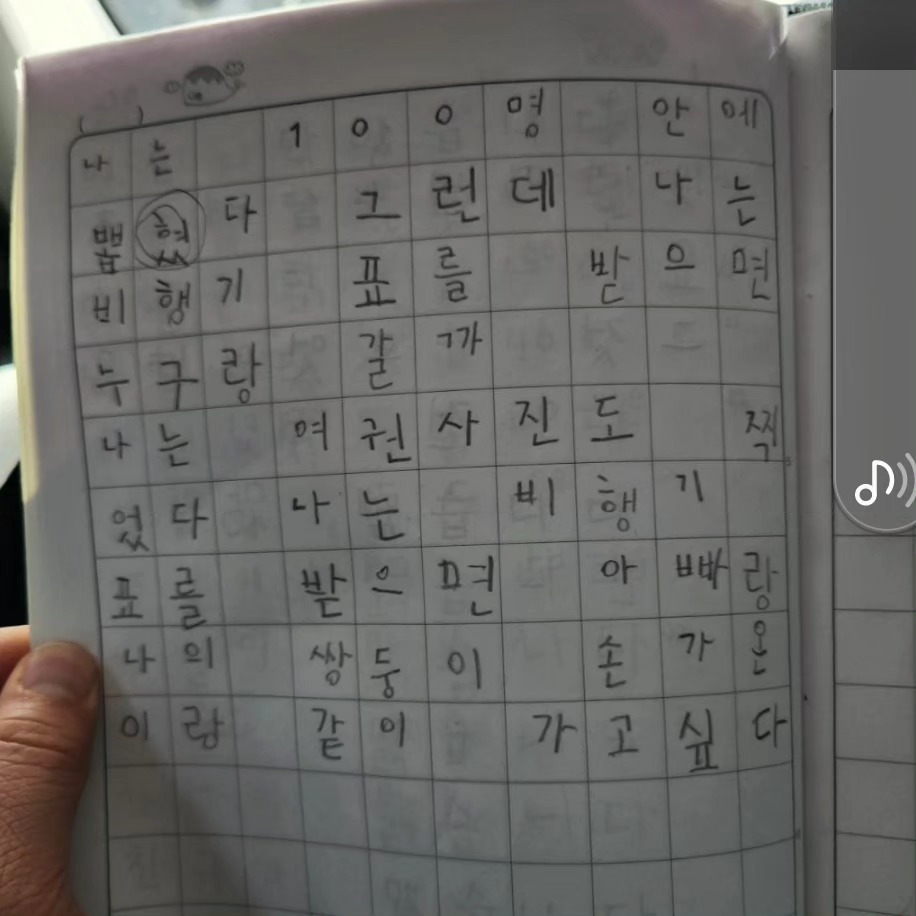 나는 100명 안에
뽑혔다 그런데 나는
비행기 표를 받으면
누구랑 갈까
나는 여권사진도 찍
었다 나는 비행기
표를 받으면 아빠랑
나의 쌍둥이 손가온
이랑 같이 가고 싶다